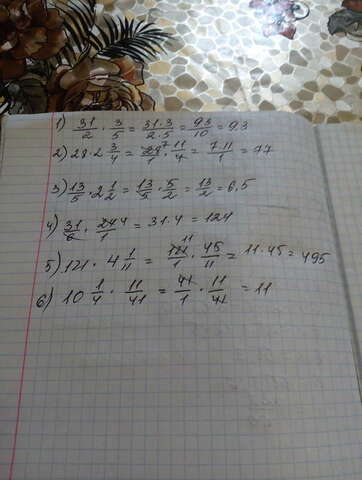 1) 31/2 · 3/5 = 31·3/2·5 = 93/10 = 9,3
2) 28·2 3/4 = 28⁷/1 · 11/4 = 7·11/1 = 77
3) 13/5 · 2 1/2 = 13/5 · 5/2 = 13/2 = 6,5
4) 31/6 · 24⁴/1 = 31·4 = 124
5) 121 · 4 1/11 = 121¹¹/1 · 45/11 = 11·45 = 495
6) 10 1/4 · 11/41 = 41/1 · 11/41 = 11